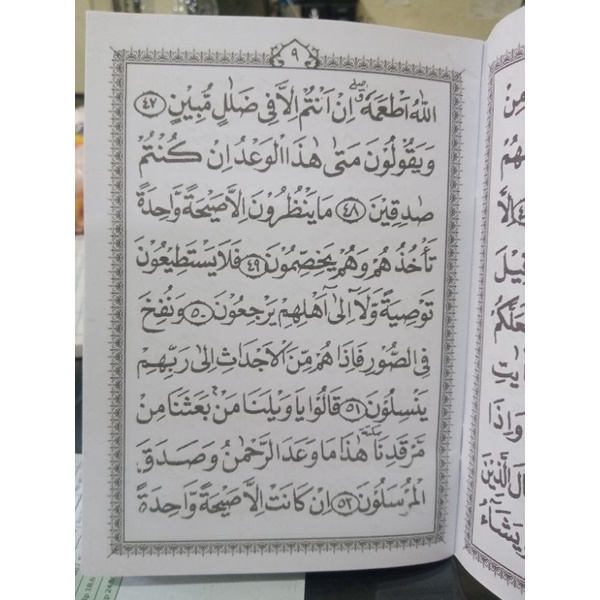 ٩
اللّٰهُ اَطْعَمَهٗٓ ۖاِنْ اَنْتُمْ اِلَّا فِيْ ضَلٰلٍ مُّبِيْنٍ ﴿٤٧﴾
وَيَقُوْلُوْنَ مَتٰى هٰذَا الْوَعْدُ اِنْ كُنْتُمْ
صٰدِقِيْنَ ﴿٤٨﴾ مَا يَنْظُرُوْنَ اِلَّا صَيْحَةً وَّاحِدَةً
تَأْخُذُهُمْ وَهُمْ يَخِصِّمُوْنَ ﴿٤٩﴾ فَلَا يَسْتَطِيْعُوْنَ
تَوْصِيَةً وَّلَآ اِلٰٓى اَهْلِهِمْ يَرْجِعُوْنَ ﴿٥٠﴾ وَنُفِخَ
فِى الصُّوْرِ فَاِذَا هُمْ مِّنَ الْاَجْدَاثِ اِلٰى رَبِّهِمْ
يَنْسِلُوْنَ ﴿٥١﴾ قَالُوْا يَا وَيْلَنَا مَنْۢ بَعَثَنَا مِنْ
مَّرْقَدِنَا ۜهٰذَا مَا وَعَدَ الرَّحْمٰنُ وَصَدَقَ
الْمُرْسَلُوْنَ ﴿٥٢﴾ اِنْ كَانَتْ اِلَّا صَيْحَةً وَّاحِدَةً
مِنْ
وَاِذَا
يَشَآءُ